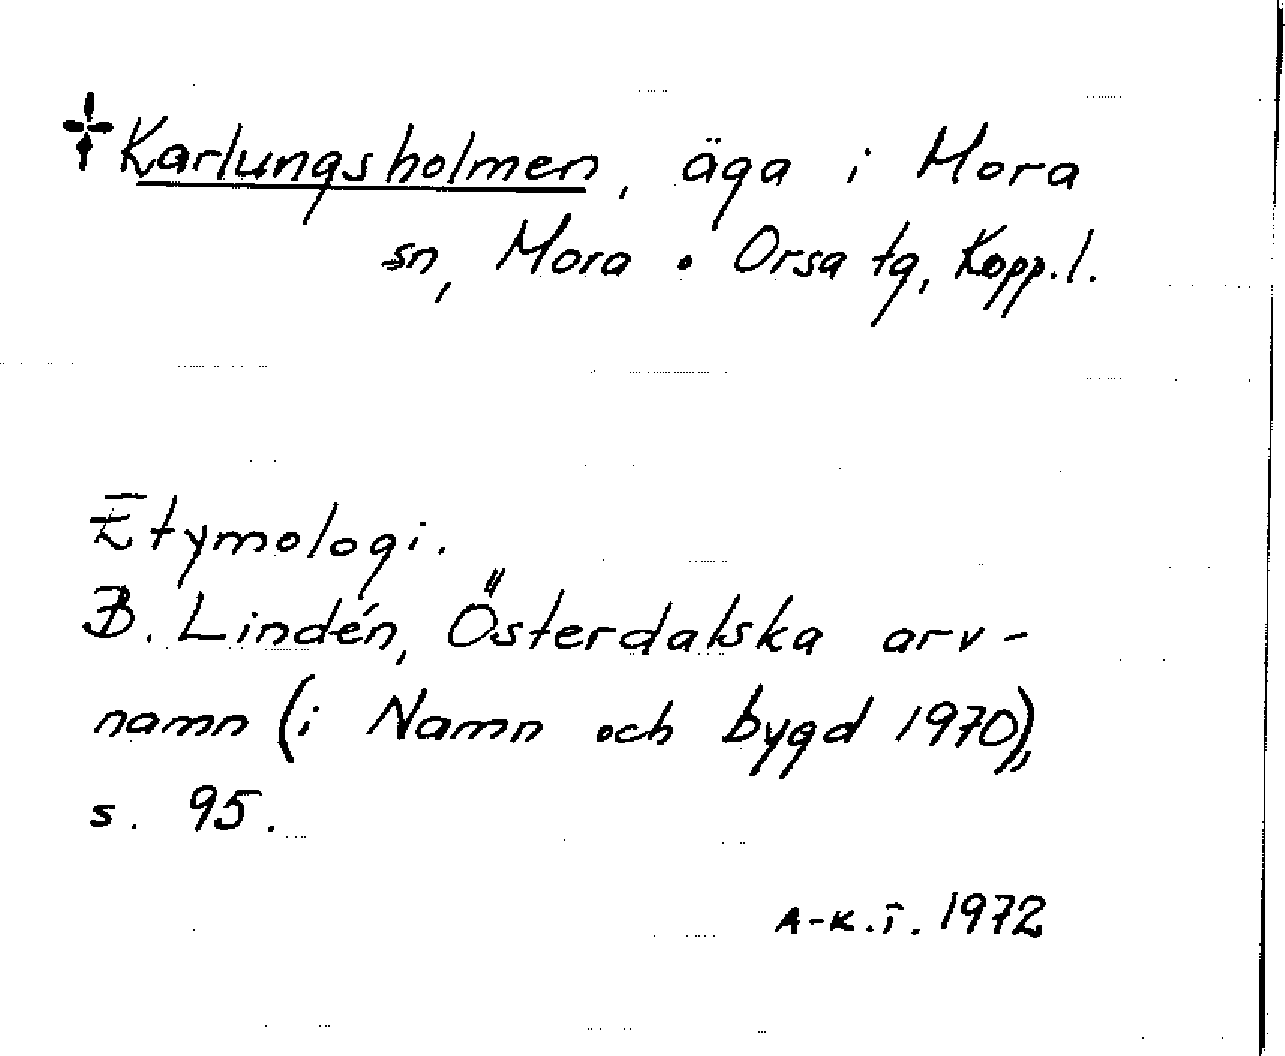 †Karlungsholmen, äga i Mora
sn, Mora o Orsa tg, Kopp.l.
Etymologi.
B. Lindén, Österdalska arv-
namn (i Namn och bygd 1970),
s. 95.
A-K.T. 1972